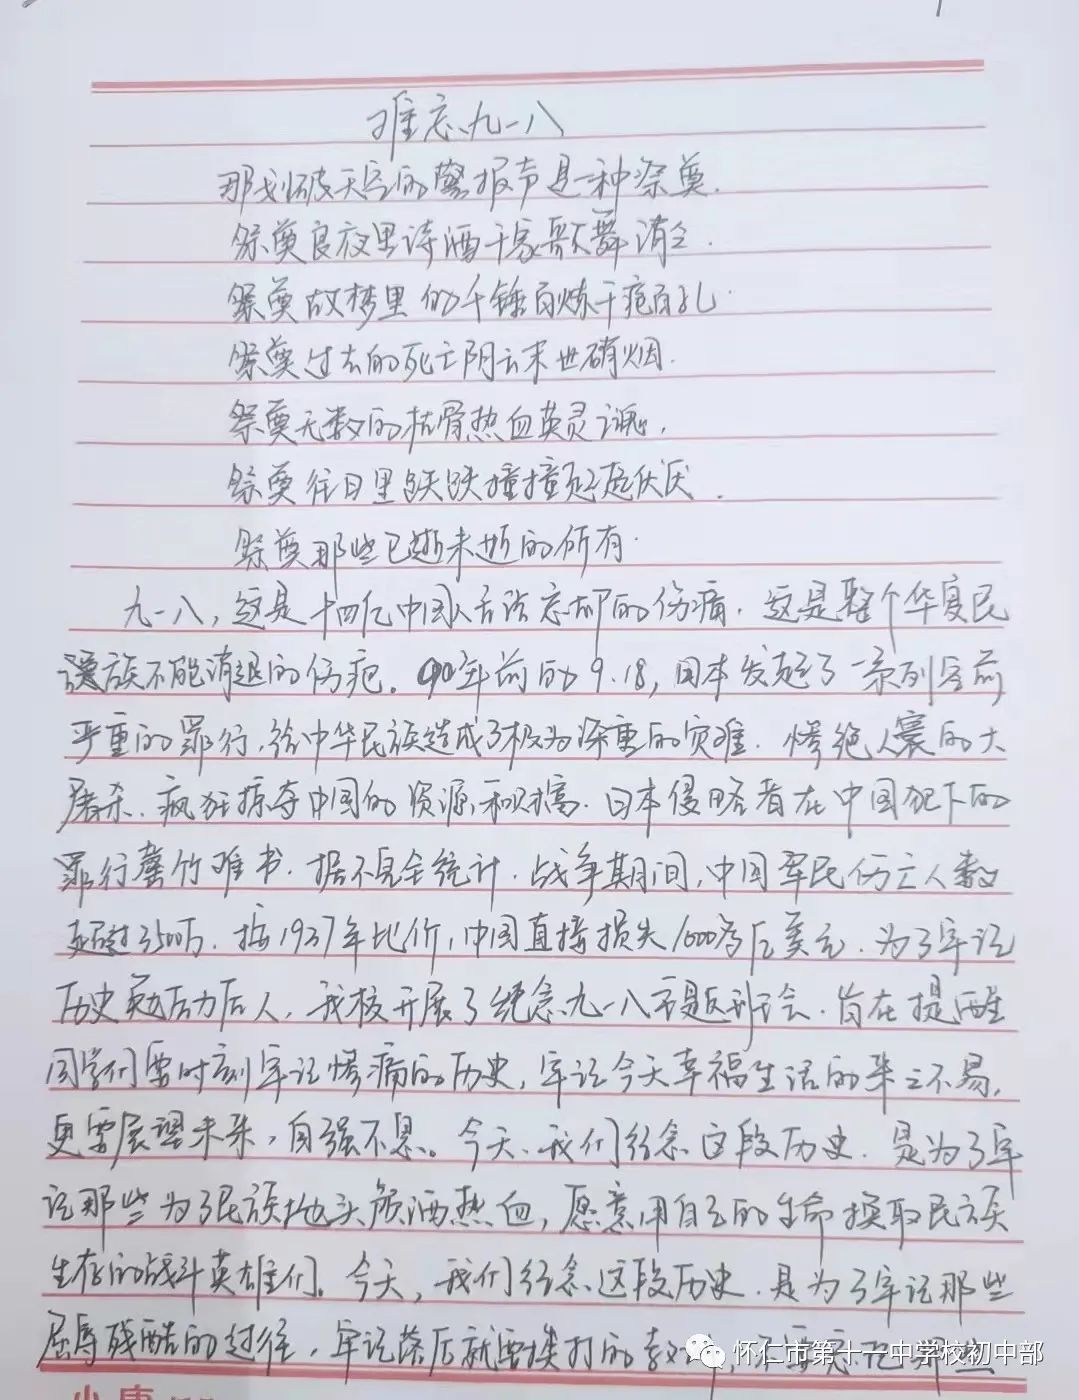 难忘九一八
那划破天空的警报声是一种祭奠.
祭奠良夜里诗酒千家歌舞消
祭奠故梦里的千锤百炼千疮百孔.
祭奠过去的死亡阴云末世硝烟.
祭奠无数的枯骨热血英灵魂,
祭奠往日里跌跌撞撞起起伏伏.
祭奠那些已逝未逝的所有.
九一八,这是十四亿中国人无法忘却的伤痛.这是整个华夏民
族不能消退的伤疤。90年前的9.18,日本发起了一系列空前
严重的罪行,给中华民族造成了极为深重的灾难.惨绝人寰的大
屠杀.疯狂掠夺中国的资源和财富.日本侵略者在中国犯下的
罪行罄竹难书.据不完全统计.战争期间,中国军民伤亡人数
超过3500万.按1937年比价,中国直接损失1000多亿美元.为了牢记
历史勉励后人,我校开展了纪念九一八主题班会.旨在提醒
同学们要时刻牢记惨痛的历史,牢记今天幸福生活的来之不易,
更要展望未来,自强不息。今天、我们纪念这段历史.是为了牢
记那些为了民族抛头颅洒热血,愿意用自己的生命换取民族
生存的战斗英雄们。今天,我们纪念这段历史.是为了牢记那些
屈辱残酷的过往,牢记落后就要挨打的教
怀仁市第十一中学校初中部